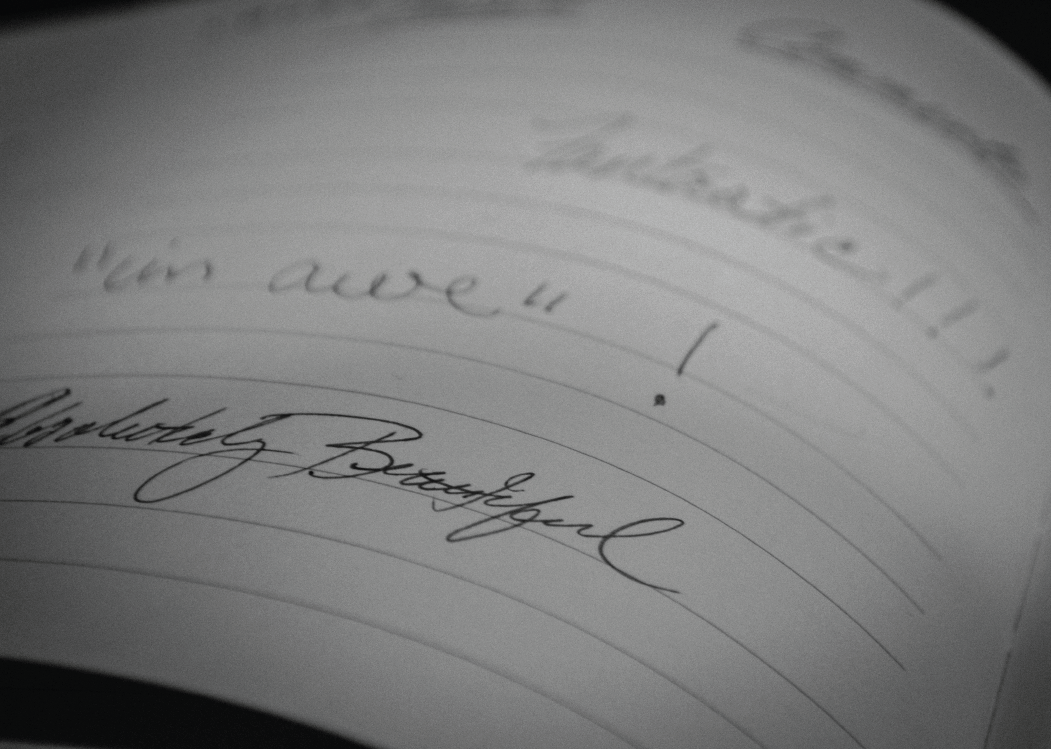 Fantastic!!!
"in awe"!
Absolutely Beautiful